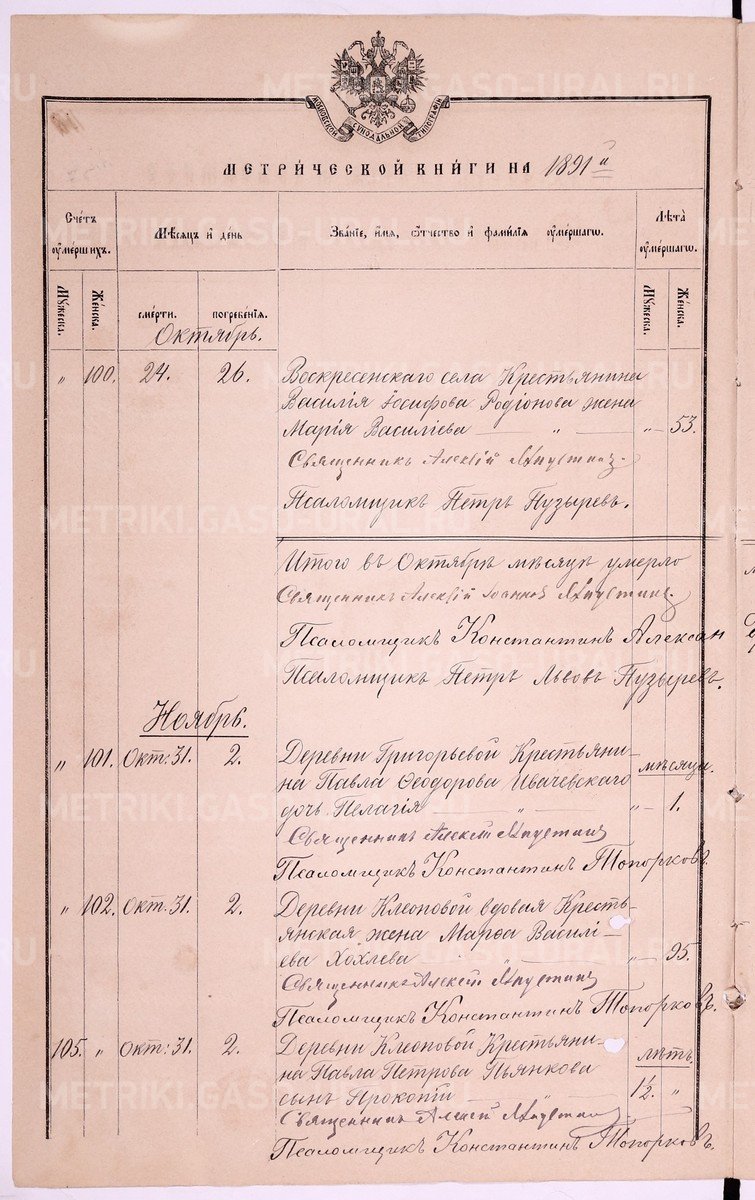 МОСКОВСКОЙ СУНОДАЛЬНОЙ ТИПОГРАФІИ
МЕТРИЧЕСКОЙ КНИГИ НА 1891 й
Счетъ оумершихъ.
Мѣсяцъ и день
Званіе, имя, отчество и фамилія оумершагω.
Лѣта оумершагω.
Мужеска.
Женска.
смерти.
погребенія.
Мужеска.
Женска.
Октябрь.
„ 100. 24. 26. Воскресенскаго села Крестьянина
Василія Іосифова Родіонова жена
Марія Василіева — „ — „ — 53.
Священникъ Алексій
Псаломщикъ Петръ Пузыревъ.
Итого въ Октябрѣ мѣсяцѣ умерло
Священникъ Алексій Іоанновъ
Псаломщикъ Константинъ Алексан
Псаломщикъ Петръ Львовъ Пузыревъ.
Ноябрь.
„ 101. Окт: 31. 2. Деревни Григорьевой Крестьяни-
на Павла Ѳеодорова Ивачевскаго мѣсяца.
дочь Пелагія — „ — „ — 1.
Священникъ Алексій
Псаломщикъ Константинъ Топорковъ.
„ 102. Окт: 31. 2. Деревни Клеоповой вдовая Кресть-
янская жена Марѳа Василі-
ева Хохлева „ — 95.
Священникъ Алексій
Псаломщикъ Константинъ Топорковъ.
105. „ Окт: 31. 2. Деревни Клеоповой Крестьяни-
на Павла Петрова Пьянкова лѣтъ.
сынъ Прокопій — „ — 1½. „
Священникъ Алексій
Псаломщикъ Константинъ Топорковъ.
METRIKI.GASO-URAL.RU